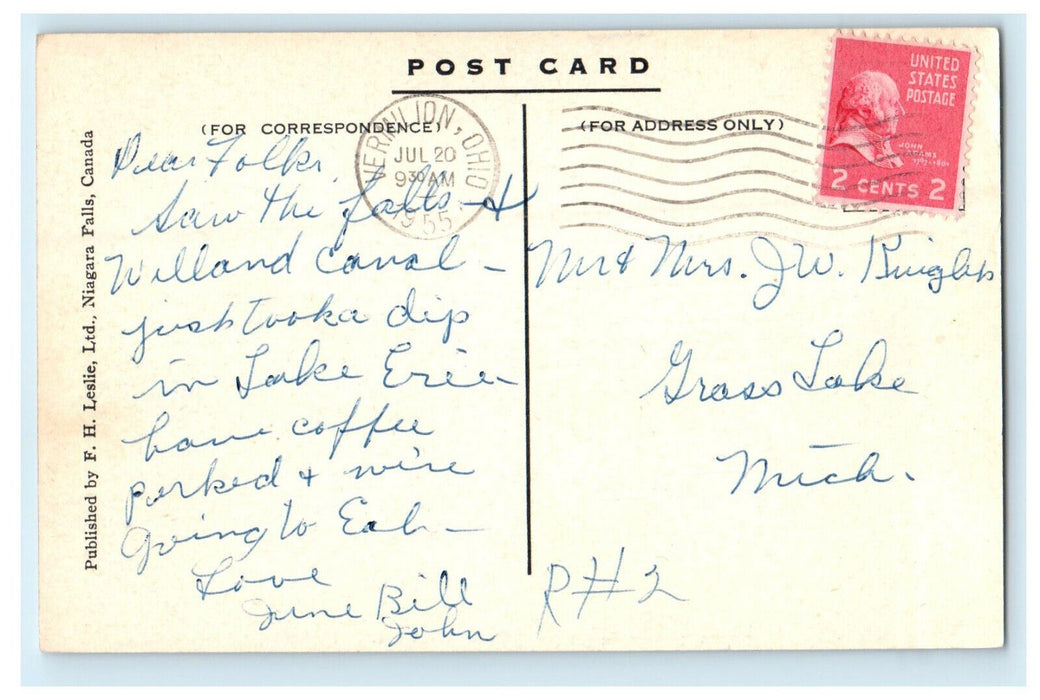 POST CARD
(FOR CORRESPONDENCE)
(FOR ADDRESS ONLY)
VERMILION, OHIO
JUL 20
9 30 AM
1955
UNITED
STATES
POSTAGE
JOHN
ADAMS
1797-1801
2 CENTS 2
Published by F. H. Leslie, Ltd., Niagara Falls, Canada
Dear Folks,
Saw the falls &
Willand Canal –
just took a dip
in Lake Erie –
have coffee
perked & we're
going to Eat –
Love
June Bill
John
Mr & Mrs. J W.
Grass Lake
Mich.
R#2